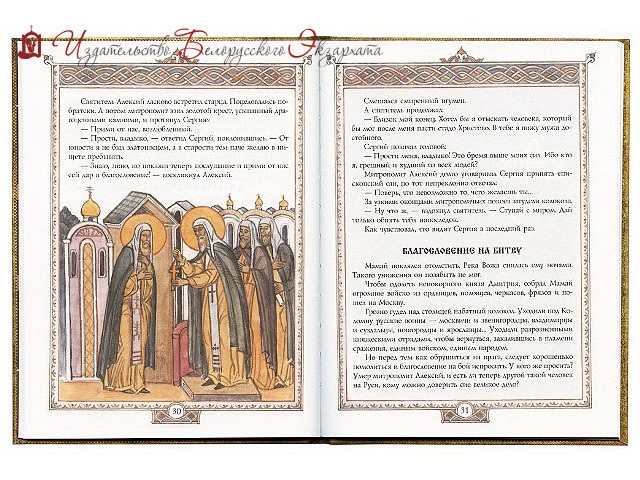 Издательство Белорусского Экзархата
Святитель Алексий ласково встретил старца. Поцеловались по-
братски. А потом митрополит взял золотой крест, усыпанный драго-
ценными камнями, и протянул Сергию:
— Прими от нас, возлюбленный.
— Прости, владыко, — ответил Сергий, поклонившись. — От
юности я не был златоносцем, а в старости тем паче желаю в ни-
щете пребывать.
— Знаю, знаю, но покажи теперь послушание и прими от нас
сей дар в благословение! — воскликнул Алексий.
30
Смешался смиренный игумен.
А святитель продолжал:
— Близок мой конец. Хотел бы я отыскать человека, который
бы мог после меня пасти стадо Христово. В тебе я вижу мужа до-
стойного.
Сергий покачал головой:
— Прости меня, владыко! Это бремя выше моих сил. Ибо кто
я, грешный и худший из всех людей?
Митрополит Алексий долго уговаривал Сергия принять епи-
скопский сан, но тот непреклонно отвечал:
— Поверь, что невозможно то, чего желаешь ты...
За узкими окошцами митрополичьих покоев загудели колокола.
— Ну что ж, — вздохнул святитель. — Ступай с миром. Дай
только обнять тебя напоследок.
Как чувствовал, что видит Сергия в последний раз.
БЛАГОСЛОВЕНИЕ НА БИТВУ
Мамай поклялся отомстить. Река Вожа снилась ему ночами.
Такого унижения он позабыть не мог.
Чтобы одолеть непокорного князя Димитрия, собрал Мамай
огромное войско из ордынцев, половцев, черкасов, фрязов и по-
шел на Москву.
Грозно гудел над столицей набатный колокол. Уходили под Ко-
ломну русские воины — москвичи и звенигородцы, владимирцы
и суздальцы, новгородцы и ярославцы... Уходили разрозненными
княжескими отрядами, чтобы вернуться, закалившись в пламени
сражения, единым войском, единым народом.
Но перед тем как обрушиться на врага, следует хорошенько
помолиться и благословение на бой испросить. У кого же просить?
Умер митрополит Алексий, и есть ли теперь другой такой человек
на Руси, кому можно доверить сие великое дело?
31